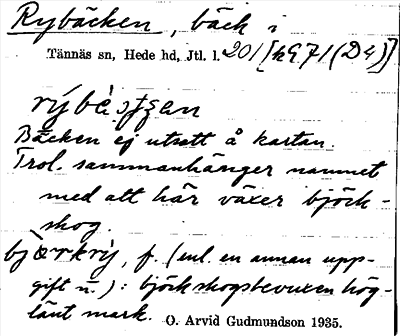 Rybäcken, bäck i
Tännäs sn, Hede hd, Jtl. l. 201 [k 971 (D4)]
Bäcken ej utsatt å kartan.
Trol. sammanhänger namnet
med att här växer björk-
skog.
f. (enl. en annan upp-
gift n.): björkskogsbevuxen hög-
länt mark.
O. Arvid Gudmundson 1935.